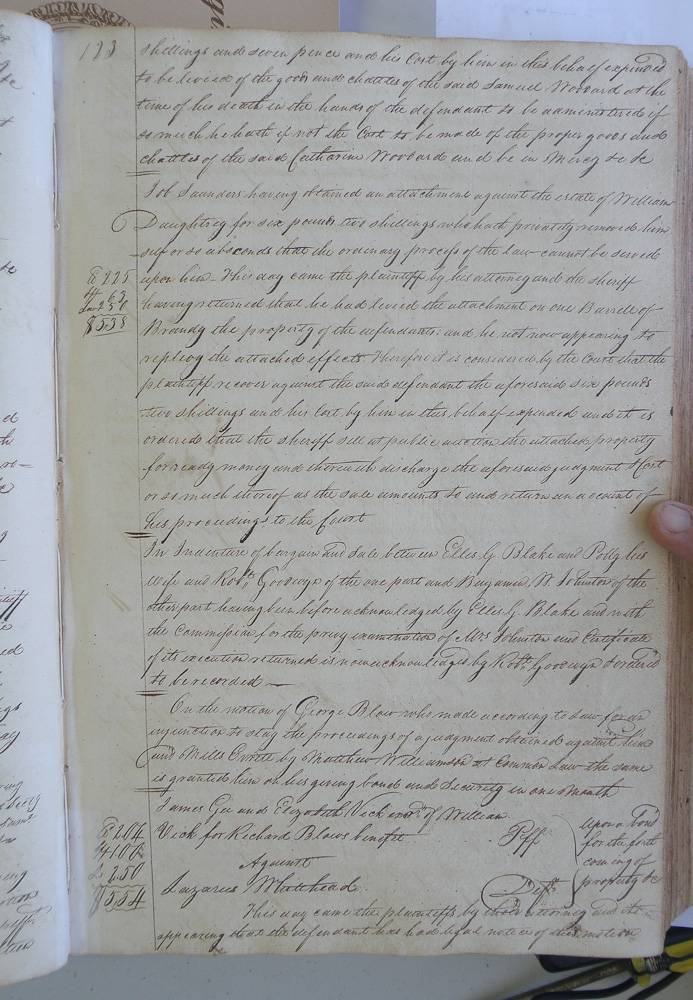 133
shillings and seven pence and his Cost by him in this behalf expended
to be levied of the goods and chattles of the said Samuel Woobard at the
time of his death in the hands of the defendant to be administered if
so much he hath if not the Cost to be made of the proper goods and
chattles of the said Catharine Woobard and be in Mercy &c &c
Job Saunders having obtained an attachment against the estate of William
Daughtrey for six pounds two shillings who hath privately removed him
self or so absconds that the ordinary process of the law cannot be served
upon him - This day came the plaintiff by his attorney and the sheriff
having returned that he had levied the attachment on one Barrell of
Brandy the property of the defendants: and he not now appearing to
replevy the attached effects Therefore it is considered by the Court that the
plaintiff recover against the said defendant the aforesaid six pounds
two shillings and his Cost by him in this behalf expended and it is
ordered that the sheriff sell at public auction the attached property
for ready money and therewith discharge the aforesaid judgment & Cost
or so much thereof as the sale amounts to and return an account of
his proceedings to the Court
An Indenture of bargain and sale between Elles G Blake and Polly his
wife and Robt. Goodwyn of the one part and Benjamin W. Johnston of the
other part having been before acknowledged by Elles G Blake and with
the Commission for the privy examination of Mrs Johnston and Certificate
of its execution returned is now acknowledged by Robt. Goodwyn & ordered
to be recorded
On the motion of George Blow who made according to law for an
injunction to stay the proceedings of a judgment obtained against him
and Mills by Matthew Williamson at Common Law the same
is granted him on his giving bond and security in one Month
James Gee and Elizabeth Vick of William
Vick for Richard Blows benefit Plff
Against
Lazarus Whitehead Deft
upon a bond
for the forth
coming of
property &c
This day came the plaintiffs by their attorney and it
appearing that the defendant has had legal notice of this motion
225
63
250
$5.38
204
100
250
$5.54